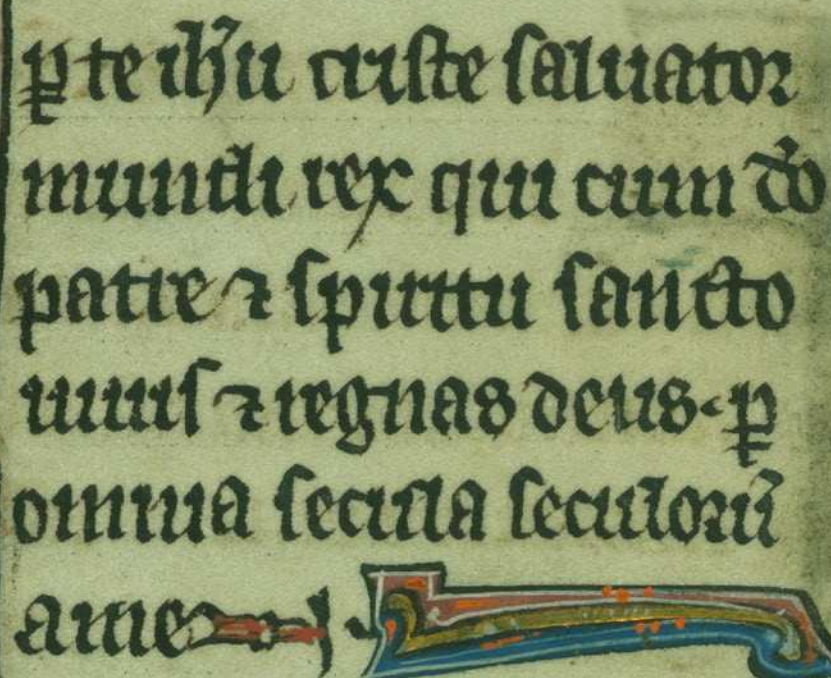 ꝑ te ih̃u criste saluator
mundi rex qui cum do̅
patre ⁊ spiritu sancto
uiuis ⁊ regnas deus · ꝑ
omnia secula seculorū
amen ·